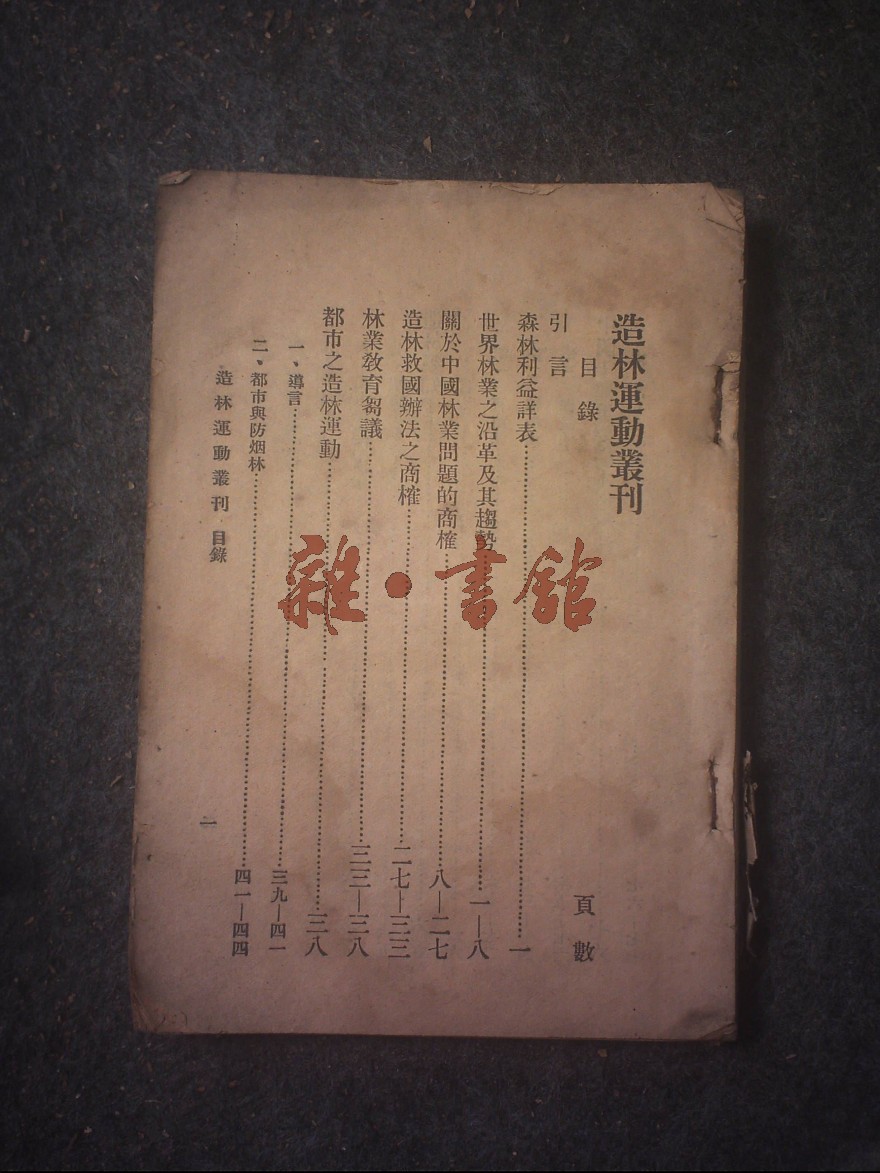 造林運動叢刊
目錄 頁數
引言
森林利益詳表……一
世界林業之沿革及其趨勢……一—八
關於中國林業問題的商榷……八—二七
造林救國辦法之商榷……二七—三三
林業教育芻議……三三—三八
都市之造林運動……三八
一、導言……三九—四一
二、都市與防烟林……四一—四四
造林運動叢刊 目錄
一
雜·書館